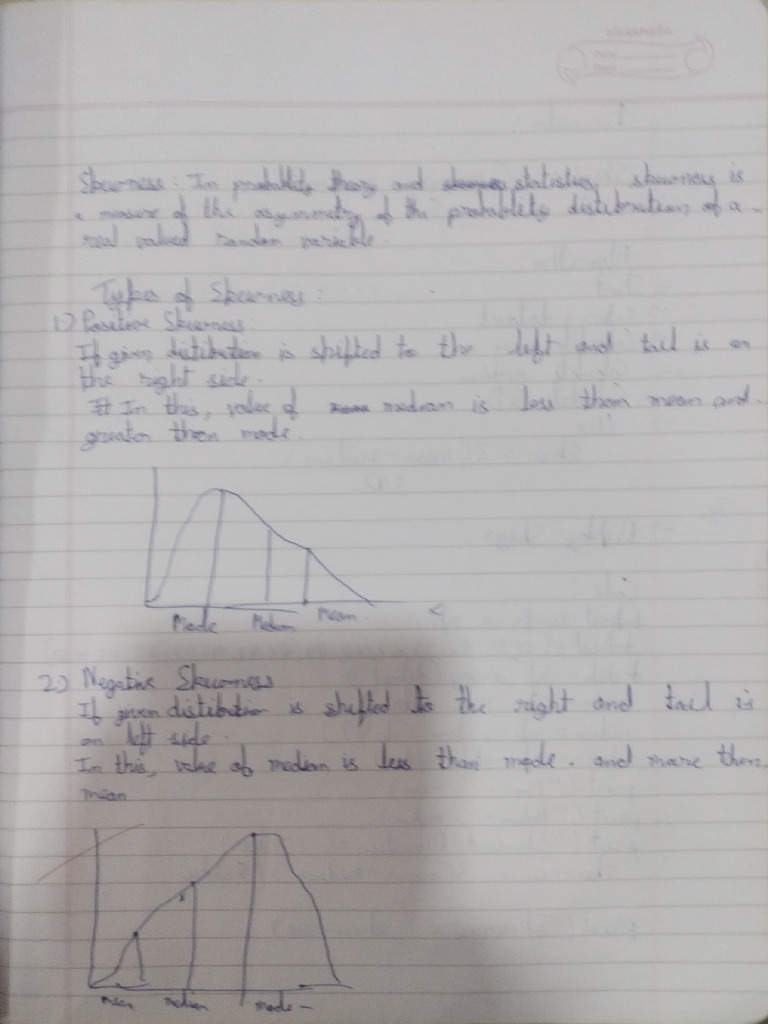 Skewness : In probability theory and statistics, skewness is
a measure of the asymmetry of the probablity distibution of a
real valued random variable.
Types of Skewness :
1.) Positive Skewness
If given distibution is shifted to the left and tail is on
the right side.
In this, value of median is less than mean and
greater then mode.
Mode Median Mean
2.) Negative Skewness
If given distibution is shifted to the right and tail is
on left side.
In this, value of median is less than mode. and more then
mean
mean median mode